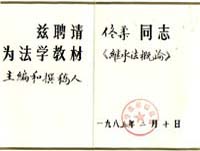 兹聘请
为法学教材
主编和撰稿人
佟柔 同志
《继承法概论》
一九八五年 月十日